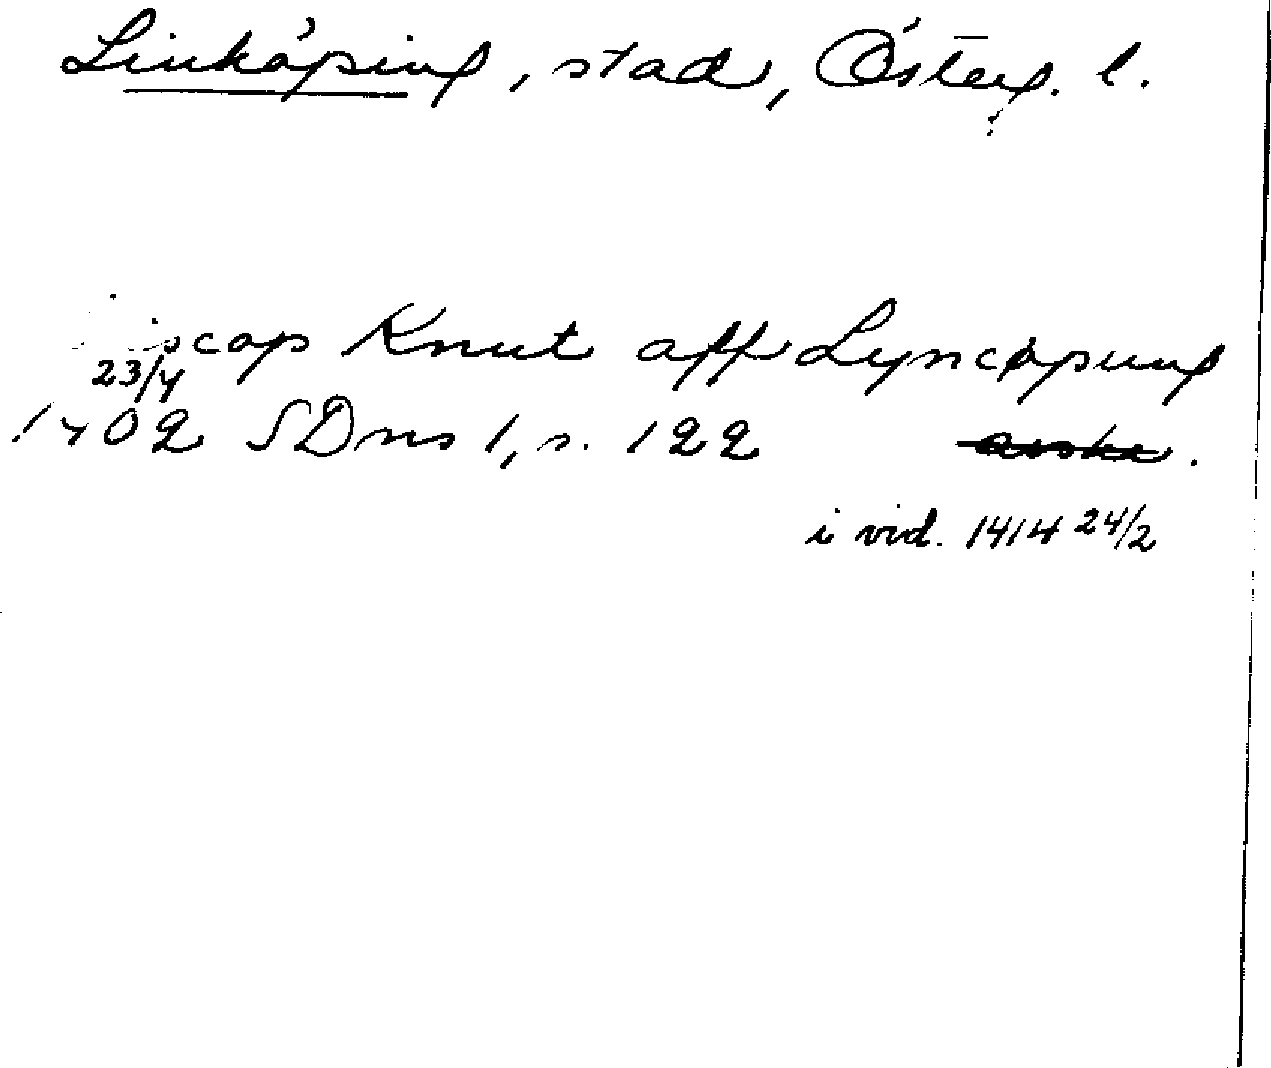 Linköping, stad, Österg. l.
iscop Knut aff Lyncøpung
23/4
1402 SDns 1, s. 122
i vid. 1414 24/2